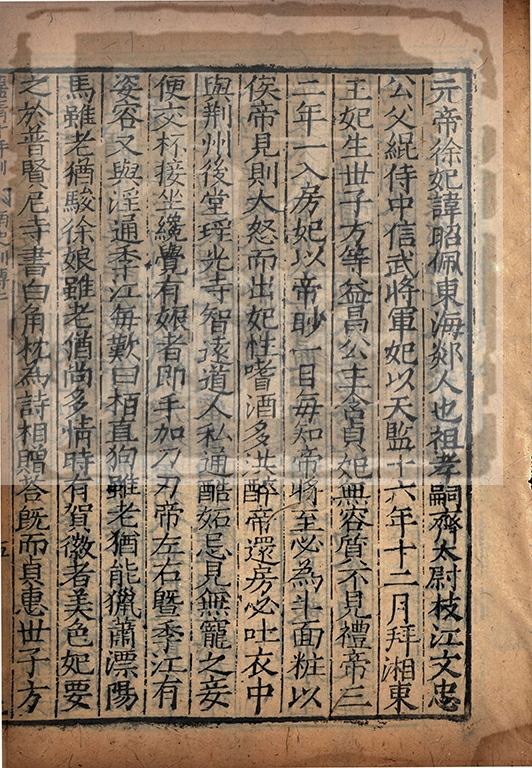 元帝徐妃諱昭佩東海郯人也祖孝嗣齊太尉枝江文忠
公父緄侍中信武將軍妃以天監十六年十二月拜湘東
王妃生世子方等益昌公主含貞妃無容質不見禮帝三
二年一入房妃以帝眇一目每知帝將至必為半面粧以
俟帝見則大怒而出妃性嗜酒多洪醉帝還房必吐衣中
與荆州後堂瑶光寺智遠道人私通酷妬忌見無寵之妾
便交杯接坐纔覺有娠者即手加刀刃帝左右暨季江有
姿容又與淫通季江每歎曰栢直狗雖老猶能獵蕭溧陽
馬雖老猶駿徐娘雖老猶尚多情時有賀徽者美色妃要
之於普賢尼寺書白角枕為詩相贈荅既而貞惠世子方